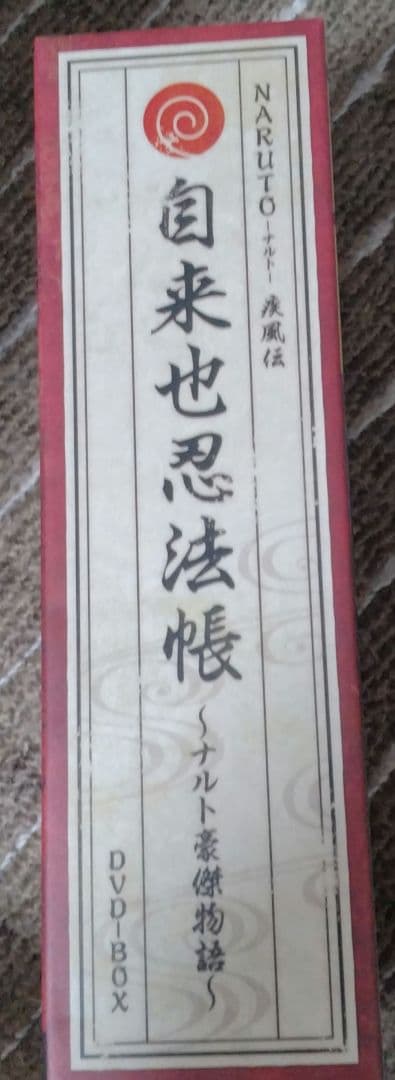 NARUTO-ナルト- 疾風伝
自来也忍法帳
～ナルト豪傑物語～
DVD-BOX